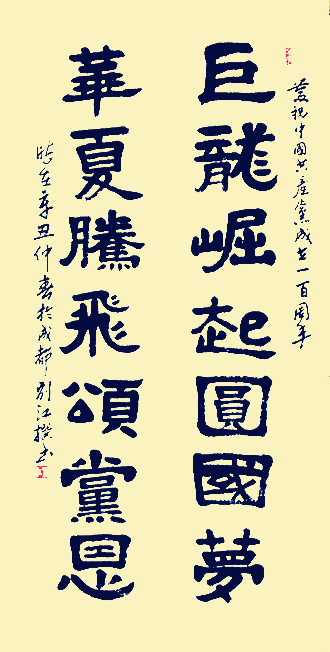 慶祝中國共產黨成立一百周年
巨龍崛起圓國夢
華夏騰飛頌黨恩
時在辛丑仲春於成都別江撰書